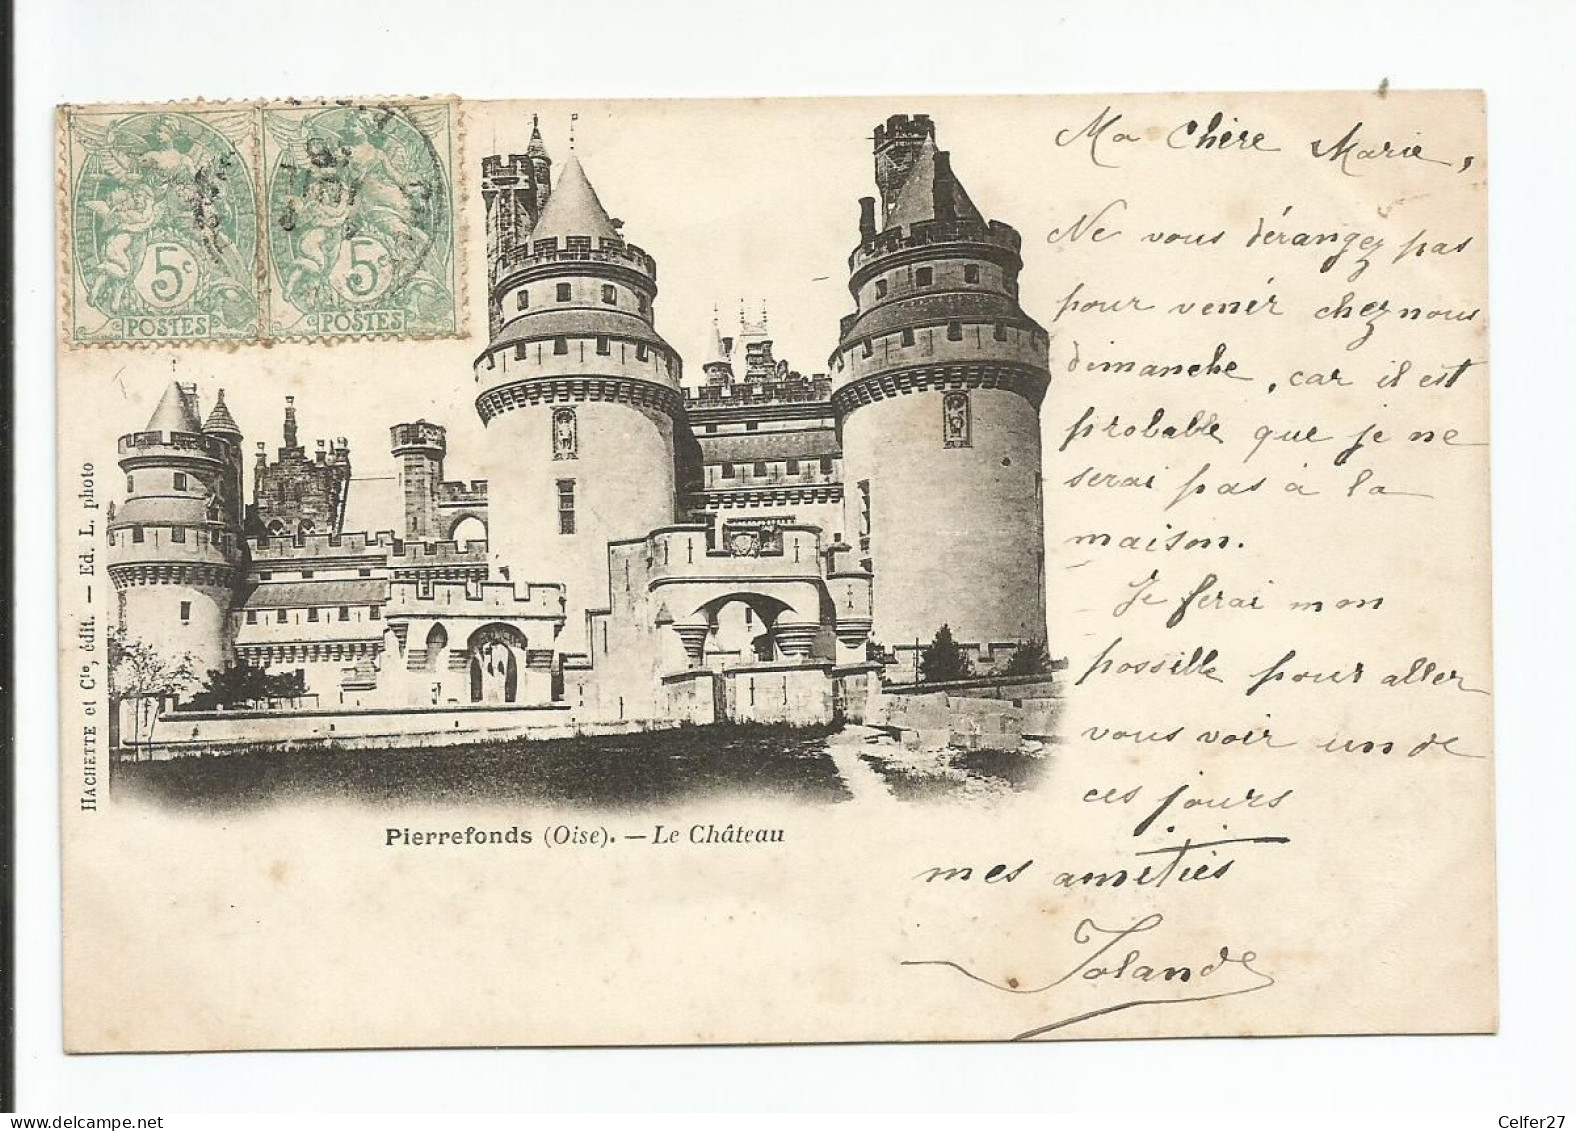 5c
POSTES
5c
POSTES
HACHETTE et Cie, édit. — Ed. L. photo
Pierrefonds (Oise). — Le Château
Ma Chère Marie,
Ne vous dérangez pas
pour venir chez nous
dimanche, car il est
probable que je ne
serai pas à la
maison.
Je ferai mon
possille pour aller
vous voir un de
ces jours
mes amitiés
Yolande
Celfer27